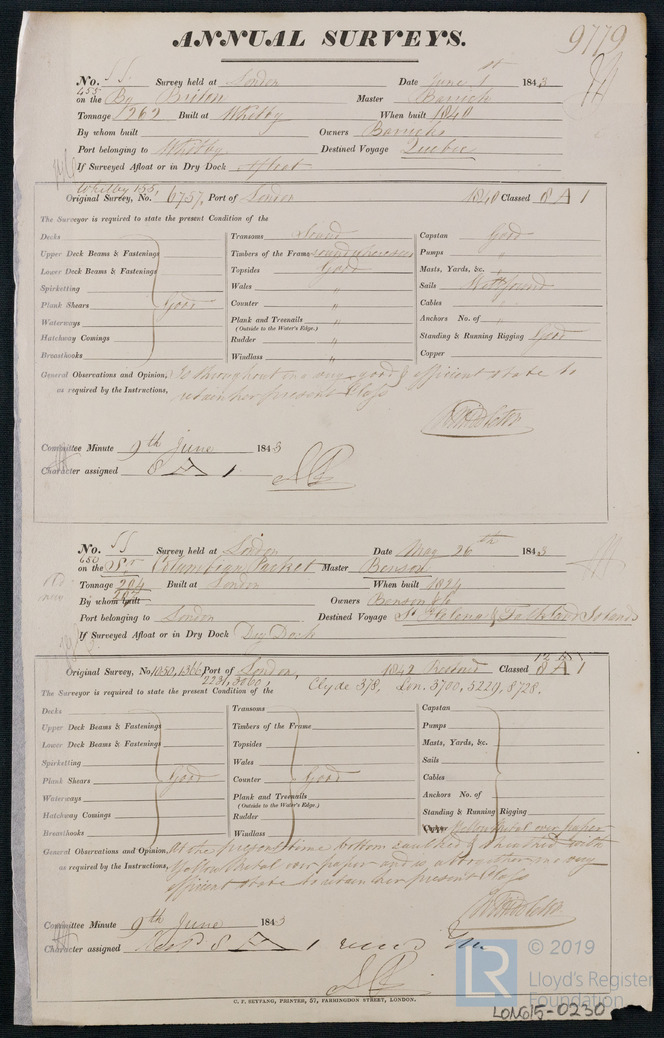 ANNUAL SURVEYS.
9779
No. 55. Survey held at London Date June 1st 1843
455
on the Bg Briton Master Barrick
Tonnage 262 Built at Whitby When built 1840
By whom built Owners Barricks
Port belonging to Whitby Destined Voyage Quebec
If Surveyed Afloat or in Dry Dock Afloat
Whitby 155,
Original Survey, No. 6757, Port of London 1840 Classed 8 A 1
The Surveyor is required to state the present Condition of the
Decks
Upper Deck Beams & Fastenings
Lower Deck Beams & Fastenings
Spirketting
Plank Shears Good
Waterways
Hatchway Comings
Breasthooks
Transoms Sound
Timbers of the Frame sound where seen
Topsides Good
Wales "
Counter "
Plank and Treenails "
(Outside to the Water's Edge.)
Rudder "
Windlass "
Capstan Good
Pumps "
Masts, Yards, &c. "
Sails Well found
Cables "
Anchors No. of "
Standing & Running Rigging Good
Copper
General Observations and Opinion, Is throughout in a very good & efficient state to
as required by the Instructions, retain her present Class
Committee Minute 9th June 1843
Character assigned 8 A 1
No. 55 Survey held at London Date May 26th 1843
650
on the Sr Columbian Packet Master Benson
Tonnage 204 Built at London When built 1824
207
By whom built Owners Benson & Co
Port belonging to London Destined Voyage St Helena & Falkland Islands
If Surveyed Afloat or in Dry Dock Dry Dock
Original Survey, No 1050, 1366 Port of London, 1842 Restored Classed 8 A 1
2231, 3060, Clyde 378, Lon. 3700, 5229, 8728.
The Surveyor is required to state the present Condition of the
Decks
Upper Deck Beams & Fastenings
Lower Deck Beams & Fastenings
Spirketting
Plank Shears Good
Waterways
Hatchway Comings
Breasthooks
Transoms
Timbers of the Frame
Topsides
Wales
Counter Good
Plank and Treenails
(Outside to the Water's Edge.)
Rudder
Windlass
Capstan
Pumps
Masts, Yards, &c.
Sails
Cables
Anchors No. of
Standing & Running Rigging
Copper Yellow Metal over paper
General Observations and Opinion, At the present time bottom caulked & sheathed with
as required by the Instructions, Yellow Metal over paper and is altogether in a very
efficient state to retain her present Class
Committee Minute 9th June 1843
Character assigned 8 A 1
C. F. SEYFANG, PRINTER, 57, FARRINGDON STREET, LONDON.
LR
© 2019
Lloyd's Register
Foundation
LON615-0230